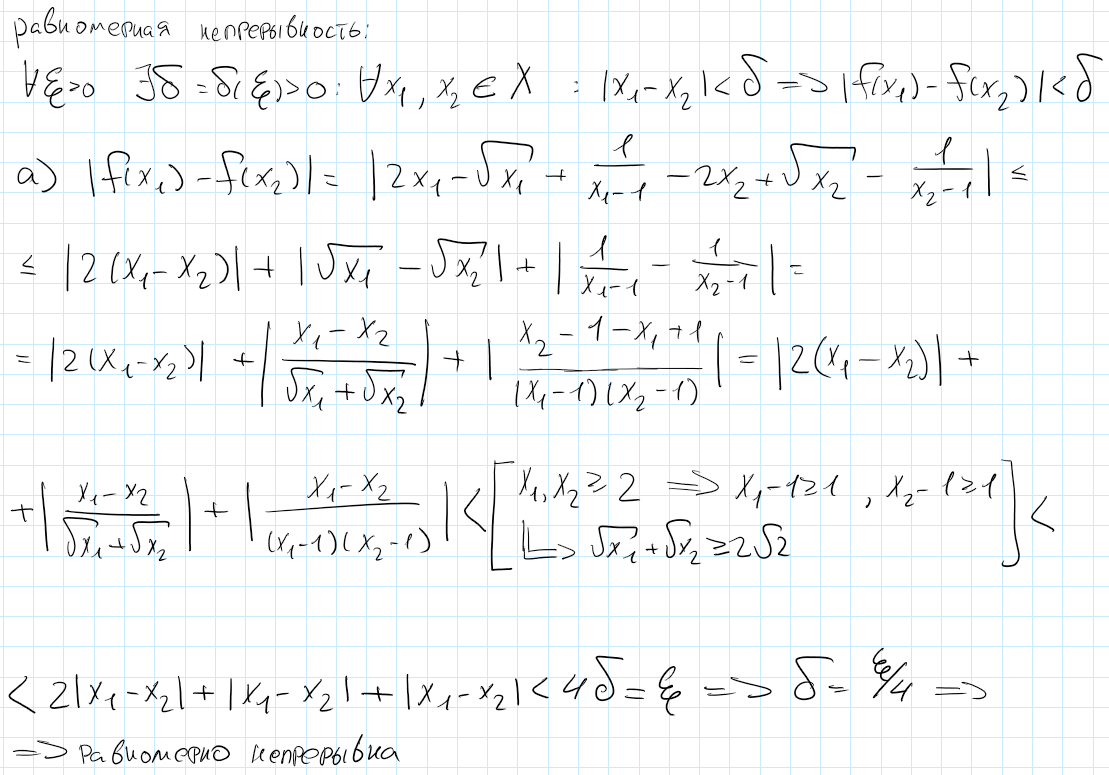 равномерная непрерывность:
∀ξ>0 ∃δ=δ(ξ)>0: ∀x₁, x₂ ∈ X : |x₁-x₂|<δ => |f(x₁)-f(x₂)|<δ
а) |f(x₁)-f(x₂)| = |2x₁-√x₁ + 1/(x₁-1) - 2x₂ + √x₂ - 1/(x₂-1)| ≤
≤ |2(x₁-x₂)| + |√x₁ - √x₂| + |1/(x₁-1) - 1/(x₂-1)| =
= |2(x₁-x₂)| + |(x₁-x₂)/(√x₁+√x₂)| + |(x₂-1-x₁+1)/((x₁-1)(x₂-1))| = |2(x₁-x₂)| +
+ |(x₁-x₂)/(√x₁+√x₂)| + |(x₁-x₂)/((x₁-1)(x₂-1))| < [x₁, x₂ ≥ 2 => x₁-1≥1, x₂-1≥1
=> √x₁+√x₂ ≥ 2√2] <
< 2|x₁-x₂| + |x₁-x₂| + |x₁-x₂| < 4δ = ξ => δ = ξ/4 =>
=> равномерно непрерывна